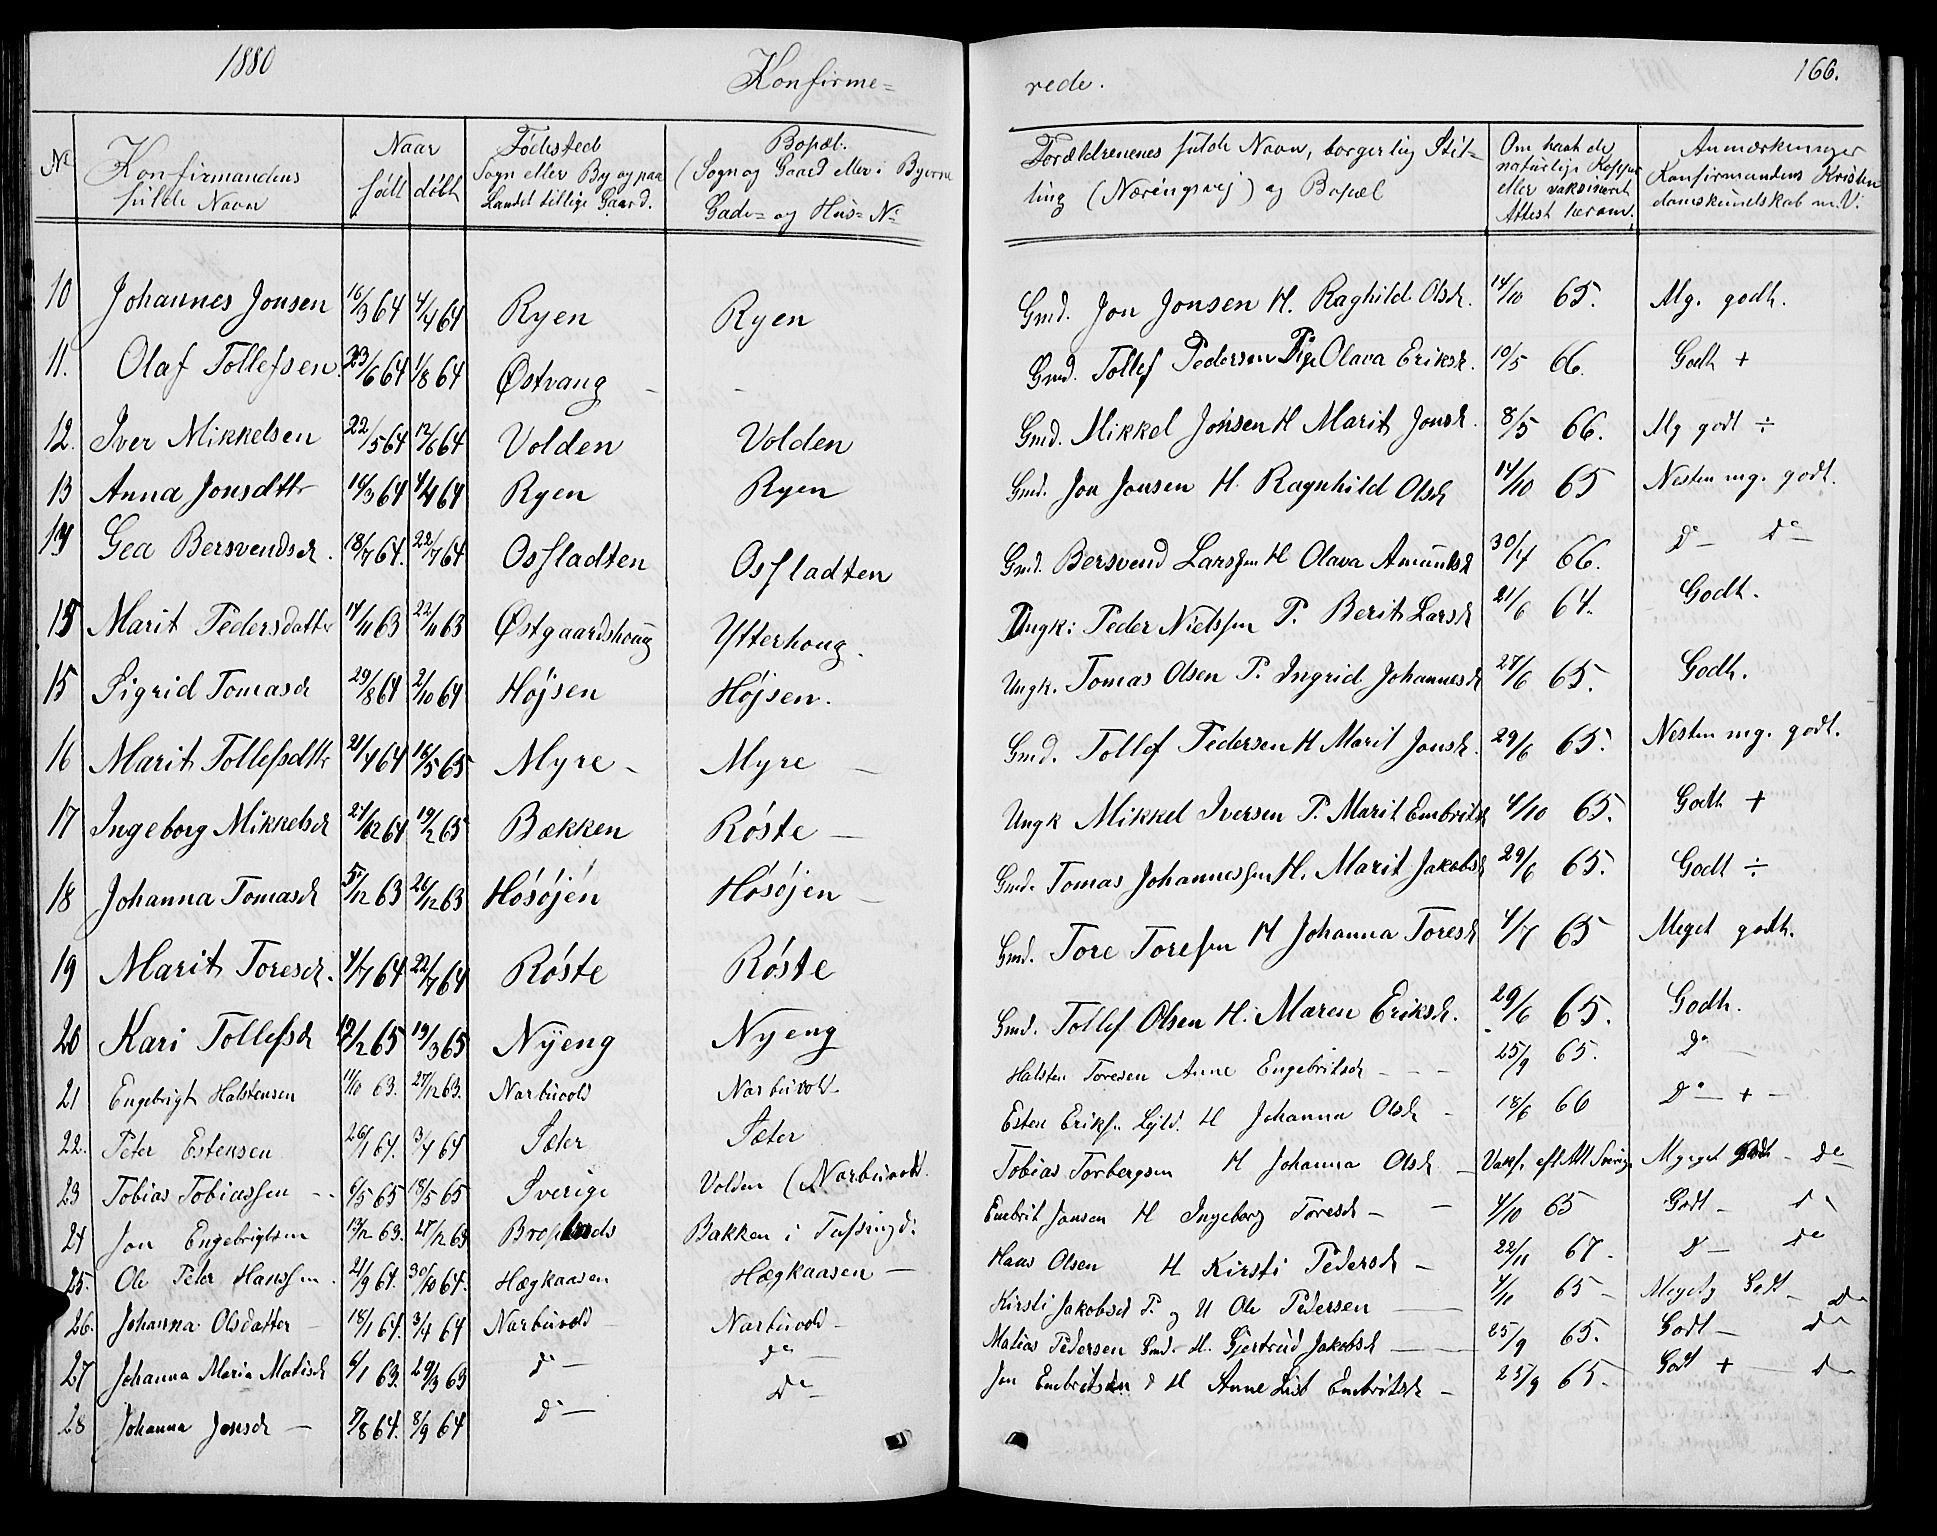 1880 Konfirme= rede. 166.
No Konfirmandens fulde Navn | Naar født | døbt | Fødested Sogn eller By og paa Landet tillige Gaard. | Bopæl. (Sogn og Gaard eller i Byerne Gade= og Hus= No | Forældrenenes fulde Navn, borgerlig Stilling (Næringsvej) og Bopæl | Om havt de naturlige Kopper eller vaksineret Attest herom. | Anmærkninger Konfirmandens Kristendomskundskab m.V.
10 Johannes Jonsen 16/3 64 4/4 64 Ryen Ryen Gmd. Jon Jonsen H. Raghild Olsd. 14/10 65. Mg. godt.
11. Olaf Tollefsen. 23/6 64 1/8 64 Østvang - - Gmd. Tollef Pedersen Pige Olava Eriksd. 10/5 66. Godt +
12. Iver Mikkelsen 22/5 64 12/6 64 Volden Volden Gmd. Mikkel Jonsen H Marit Jonsd. 8/5 66. Mg godt ÷
13 Anna Jonsdttr 16/3 64 4/4 64 Ryen Ryen Gmd. Jon Jonsen H. Ragnhild Olsd 14/10 65 Nesten mg. godt.
14 Gea Bersvendsd. 18/7 64. 22/7 64 Osfladten Osfladten Gmd. Bersvend Larssen H Olava Amundsd 30/4 66. Do — Do —
15 Marit Pedersdatter 14/11 63 22/11 63 Østgaardshoug Ytterhoug. Ungk: Peder Nielssen P. Berit Larsd 21/6 64. Godt.
15 Sigrid Tomasd 29/8 64 2/10 64 Højsen Højsen. Ungk. Tomas Olsen P. Ingrid Johannesd 27/6 65. Godt.
16 Marit Tollefsdttr 21/4 64 16/5 65 Myre - Myre — Gmd. Tollef Pedersen H Marit Jonsd. 29/6 65. Nesten mg. godt.
17 Ingeborg Mikkelsd 21/12 64 19/2 65 Bækken Røste — Ungk Mikkel Iversen P. Marit Embritsd 4/10 65. Godt +
18 Johanna Tomasd 5/12 63 26/12 63 Høsøjen Høsøjen — Gmd. Tomas Johannessen H. Marit Jakobsd 29/6 65. Godt ÷
19 Marit Toresd. 4/7 64 22/7 64 Røste Røste Gmd. Tore Toresen H Johanna Toresd 4/7 65 Meget godt.
20 Kari Tollefsd 12/2 65 19/3 65 Nyeng Nyeng Gmd. Tollef Olsen H. Maren Eriksd. 29/6 65. Godt.
21 Engebrigt Halstensen 11/10 63. 27/12 63. Narbuvold Narbuvold - Halsten Toresen Anne Engebritsd - - - 25/9 65. Do —
22. Peter Estensen 26/1 64. 3/4 64 Sæter Sæter Esten Eriksn H Johanna Olsd - 18/6 66 Do — + -
23 Tobias Tobiassen - - 6/5 65 18/5 65 Sverige Volden (Narbuvold. Tobias Torbergsen H Johanna Olsd. - Vaks. eft Att Sverige Myget Godt - Do
24 Jon Engebrigtsen 13/12 63. 27/12 63 Bakken i Tufsingd: Embrit Jonsen H Ingeborg Toresd - — 4/10 65 Godt - Do
25. Ole Peter Hanssen 21/9 64. 30/10 64. Hægkaasen Hægkaasen — Hans Olsen H Kirsti Pedersd - 22/11 67. Do — Do
26. Johanna Olsdatter - 18/1 64. 3/4 64 Narbuvold - Narbuvold - Kirsti Jakobsd P. og U Ole Pedersen — 4/10 65 - Megetg Godt - Do
27 Johanna Maria Matisd 6/1 63. 29/3 63 Do — Do — Matias Pedersen Gmd. H. Gjertrud Jakobsd — 25/9 65. Godt — Do
28 Johanna Jonsd — 7/8 64. 8/9 64 Do — Do — Jon Embritsen H Anne List Embritsd - 25/9 65 - Godt + — Do